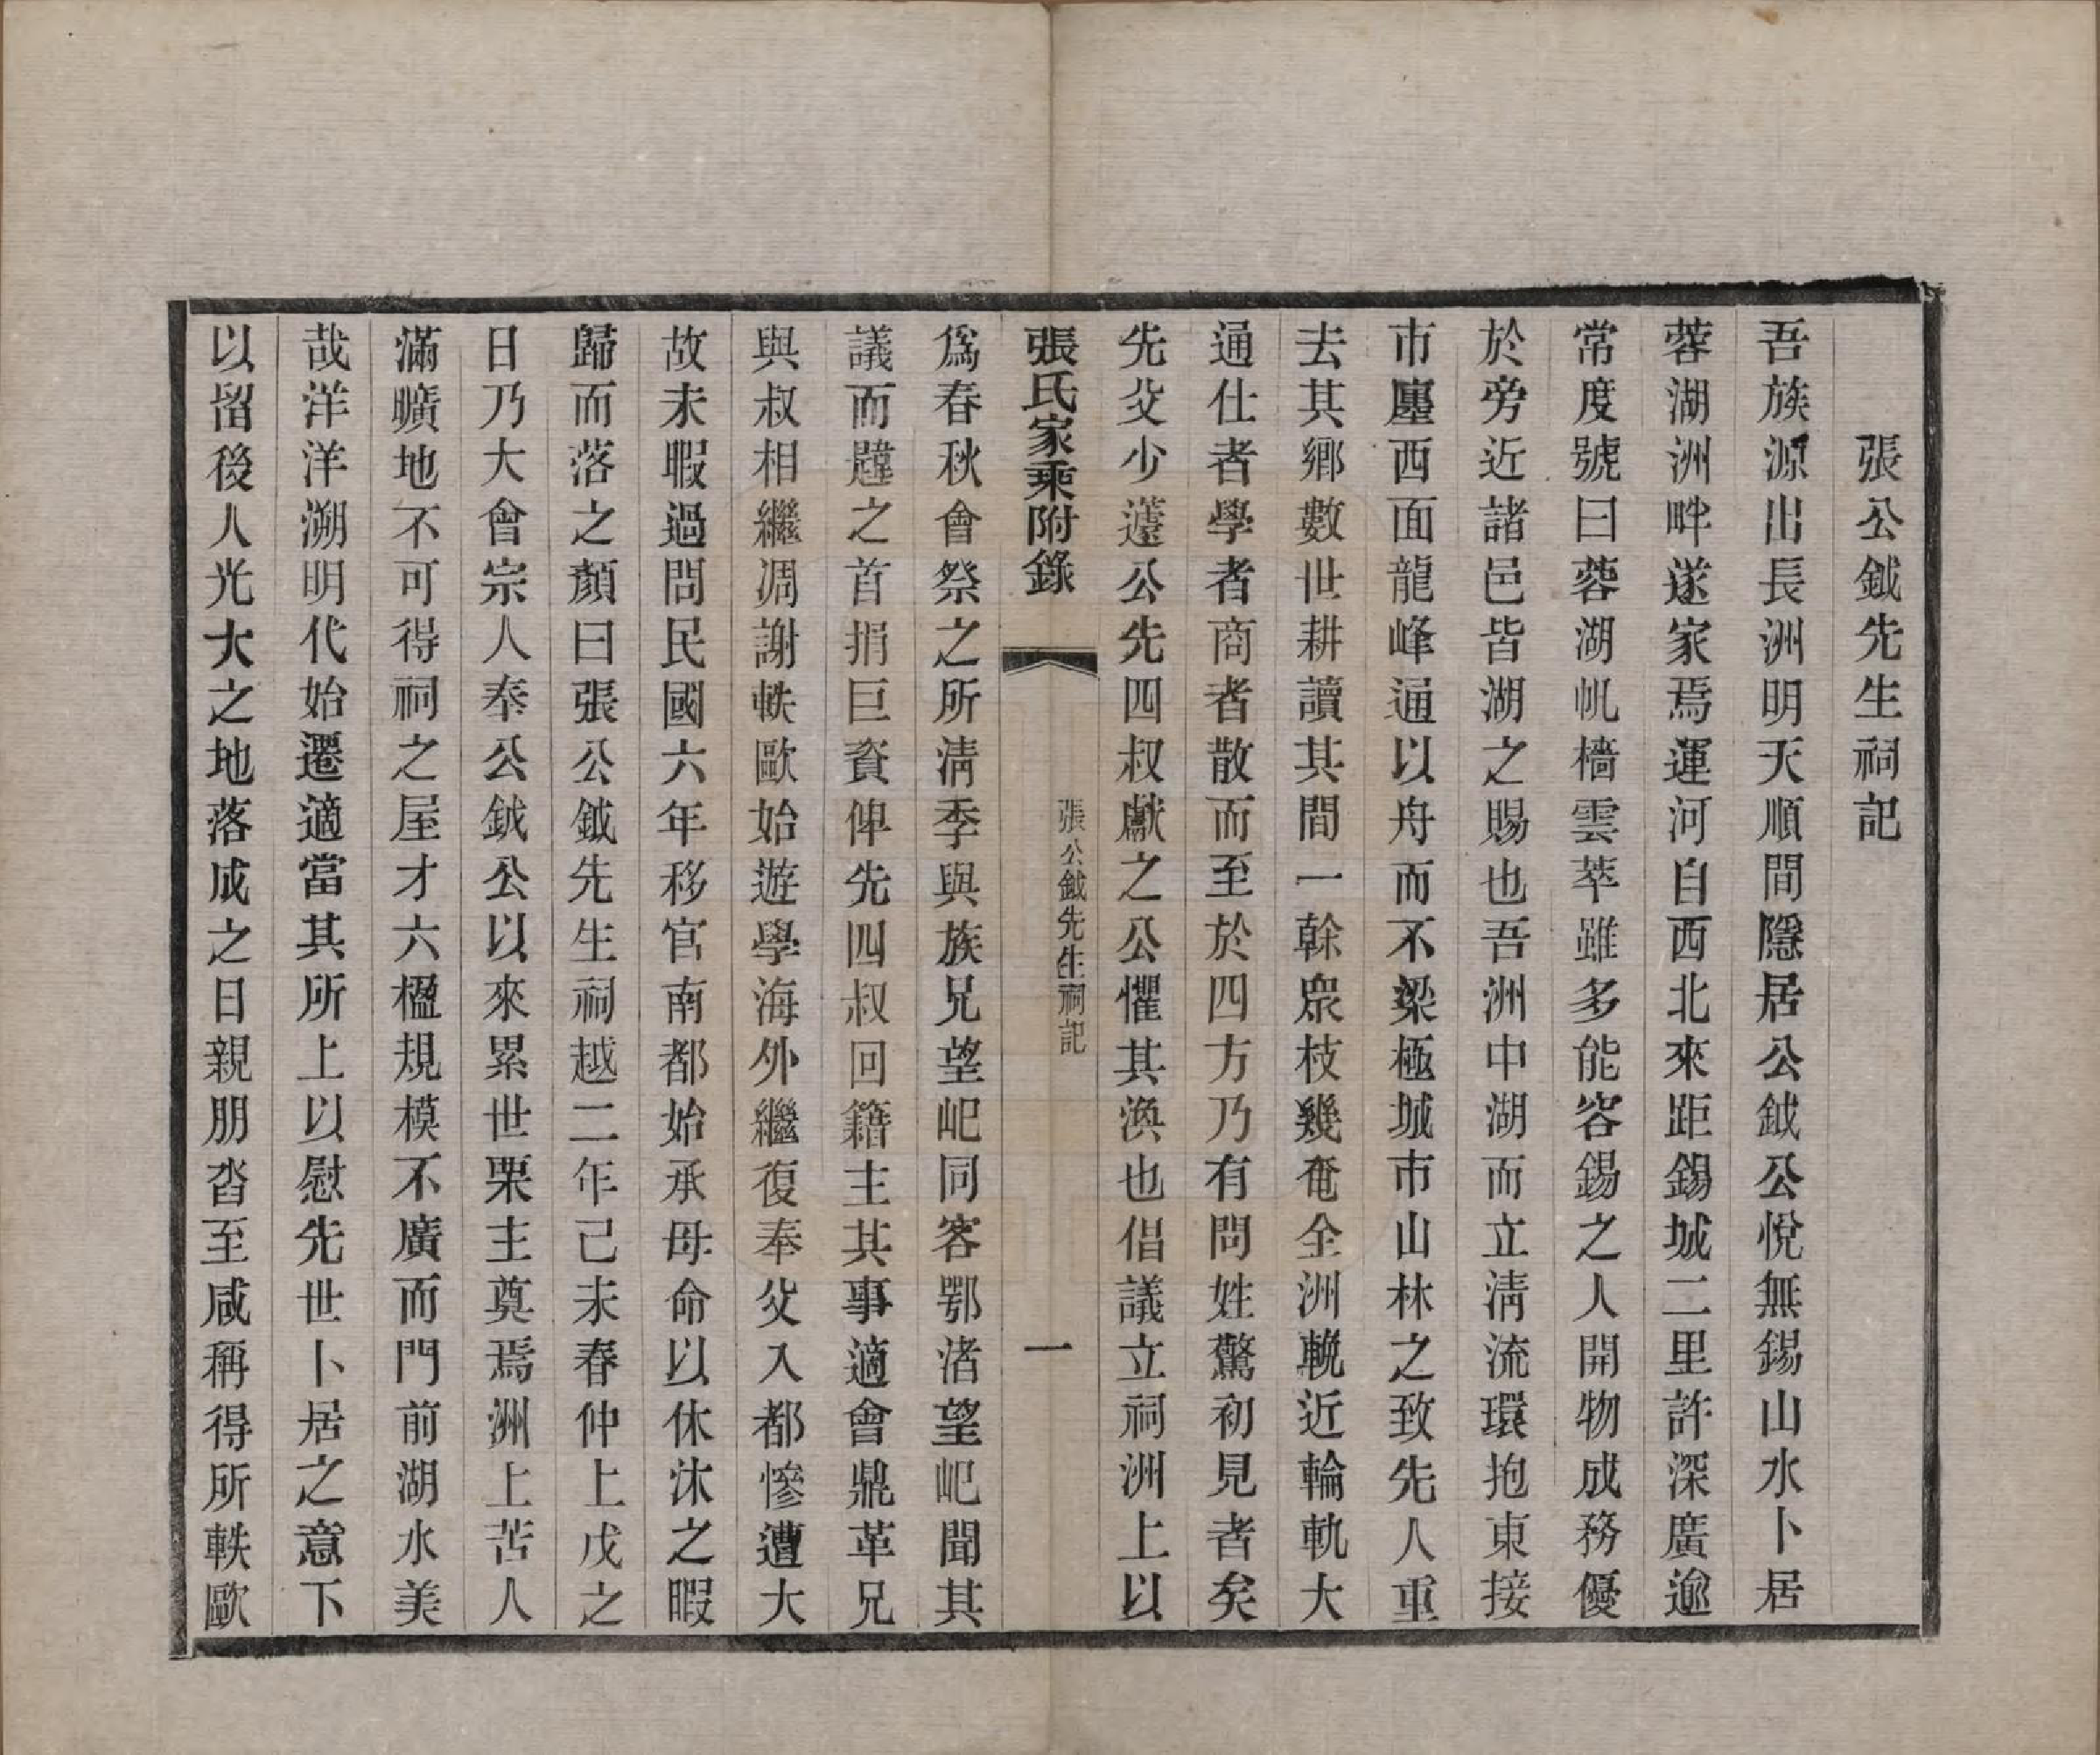 張公鉞先生祠記
吾族源出長洲明天順間隱居公鉞公悅無錫山水卜居
蓉湖洲畔遂家焉運河自西北來距錫城二里許深廣逾
常度號曰蓉湖帆檣雲萃雖多能容錫之人開物成務優
於旁近諸邑皆湖之賜也吾洲中湖而立淸流環抱東接
市廛西面龍峰通以舟而不梁極城市山林之致先人重
去其鄕數世耕讀其間一榦眾枝幾奄全洲輓近輪軌大
通仕者學者商者散而至於四方乃有問姓驚初見者矣
先父少蘧公先四叔獻之公懼其渙也倡議立祠洲上以
張氏家乘附錄
張公鉞先生祠記
一
爲春秋會祭之所淸季與族兄望屺同客鄂渚望屺聞其
議而韙之首捐巨資俾先四叔回籍主其事適會鼎革兄
與叔相繼凋謝軼歐始遊學海外繼復奉父入都慘遭大
故未暇過問民國六年移官南都始承母命以休沐之暇
歸而落之顏曰張公鉞先生祠越二年己未春仲上戊之
日乃大會宗人奉公鉞公以來累世栗主奠焉洲上苦人
滿曠地不可得祠之屋才六楹規模不廣而門前湖水美
哉洋洋溯明代始遷適當其所上以慰先世卜居之意下
以留後人光大之地落成之日親朋沓至咸稱得所軼歐